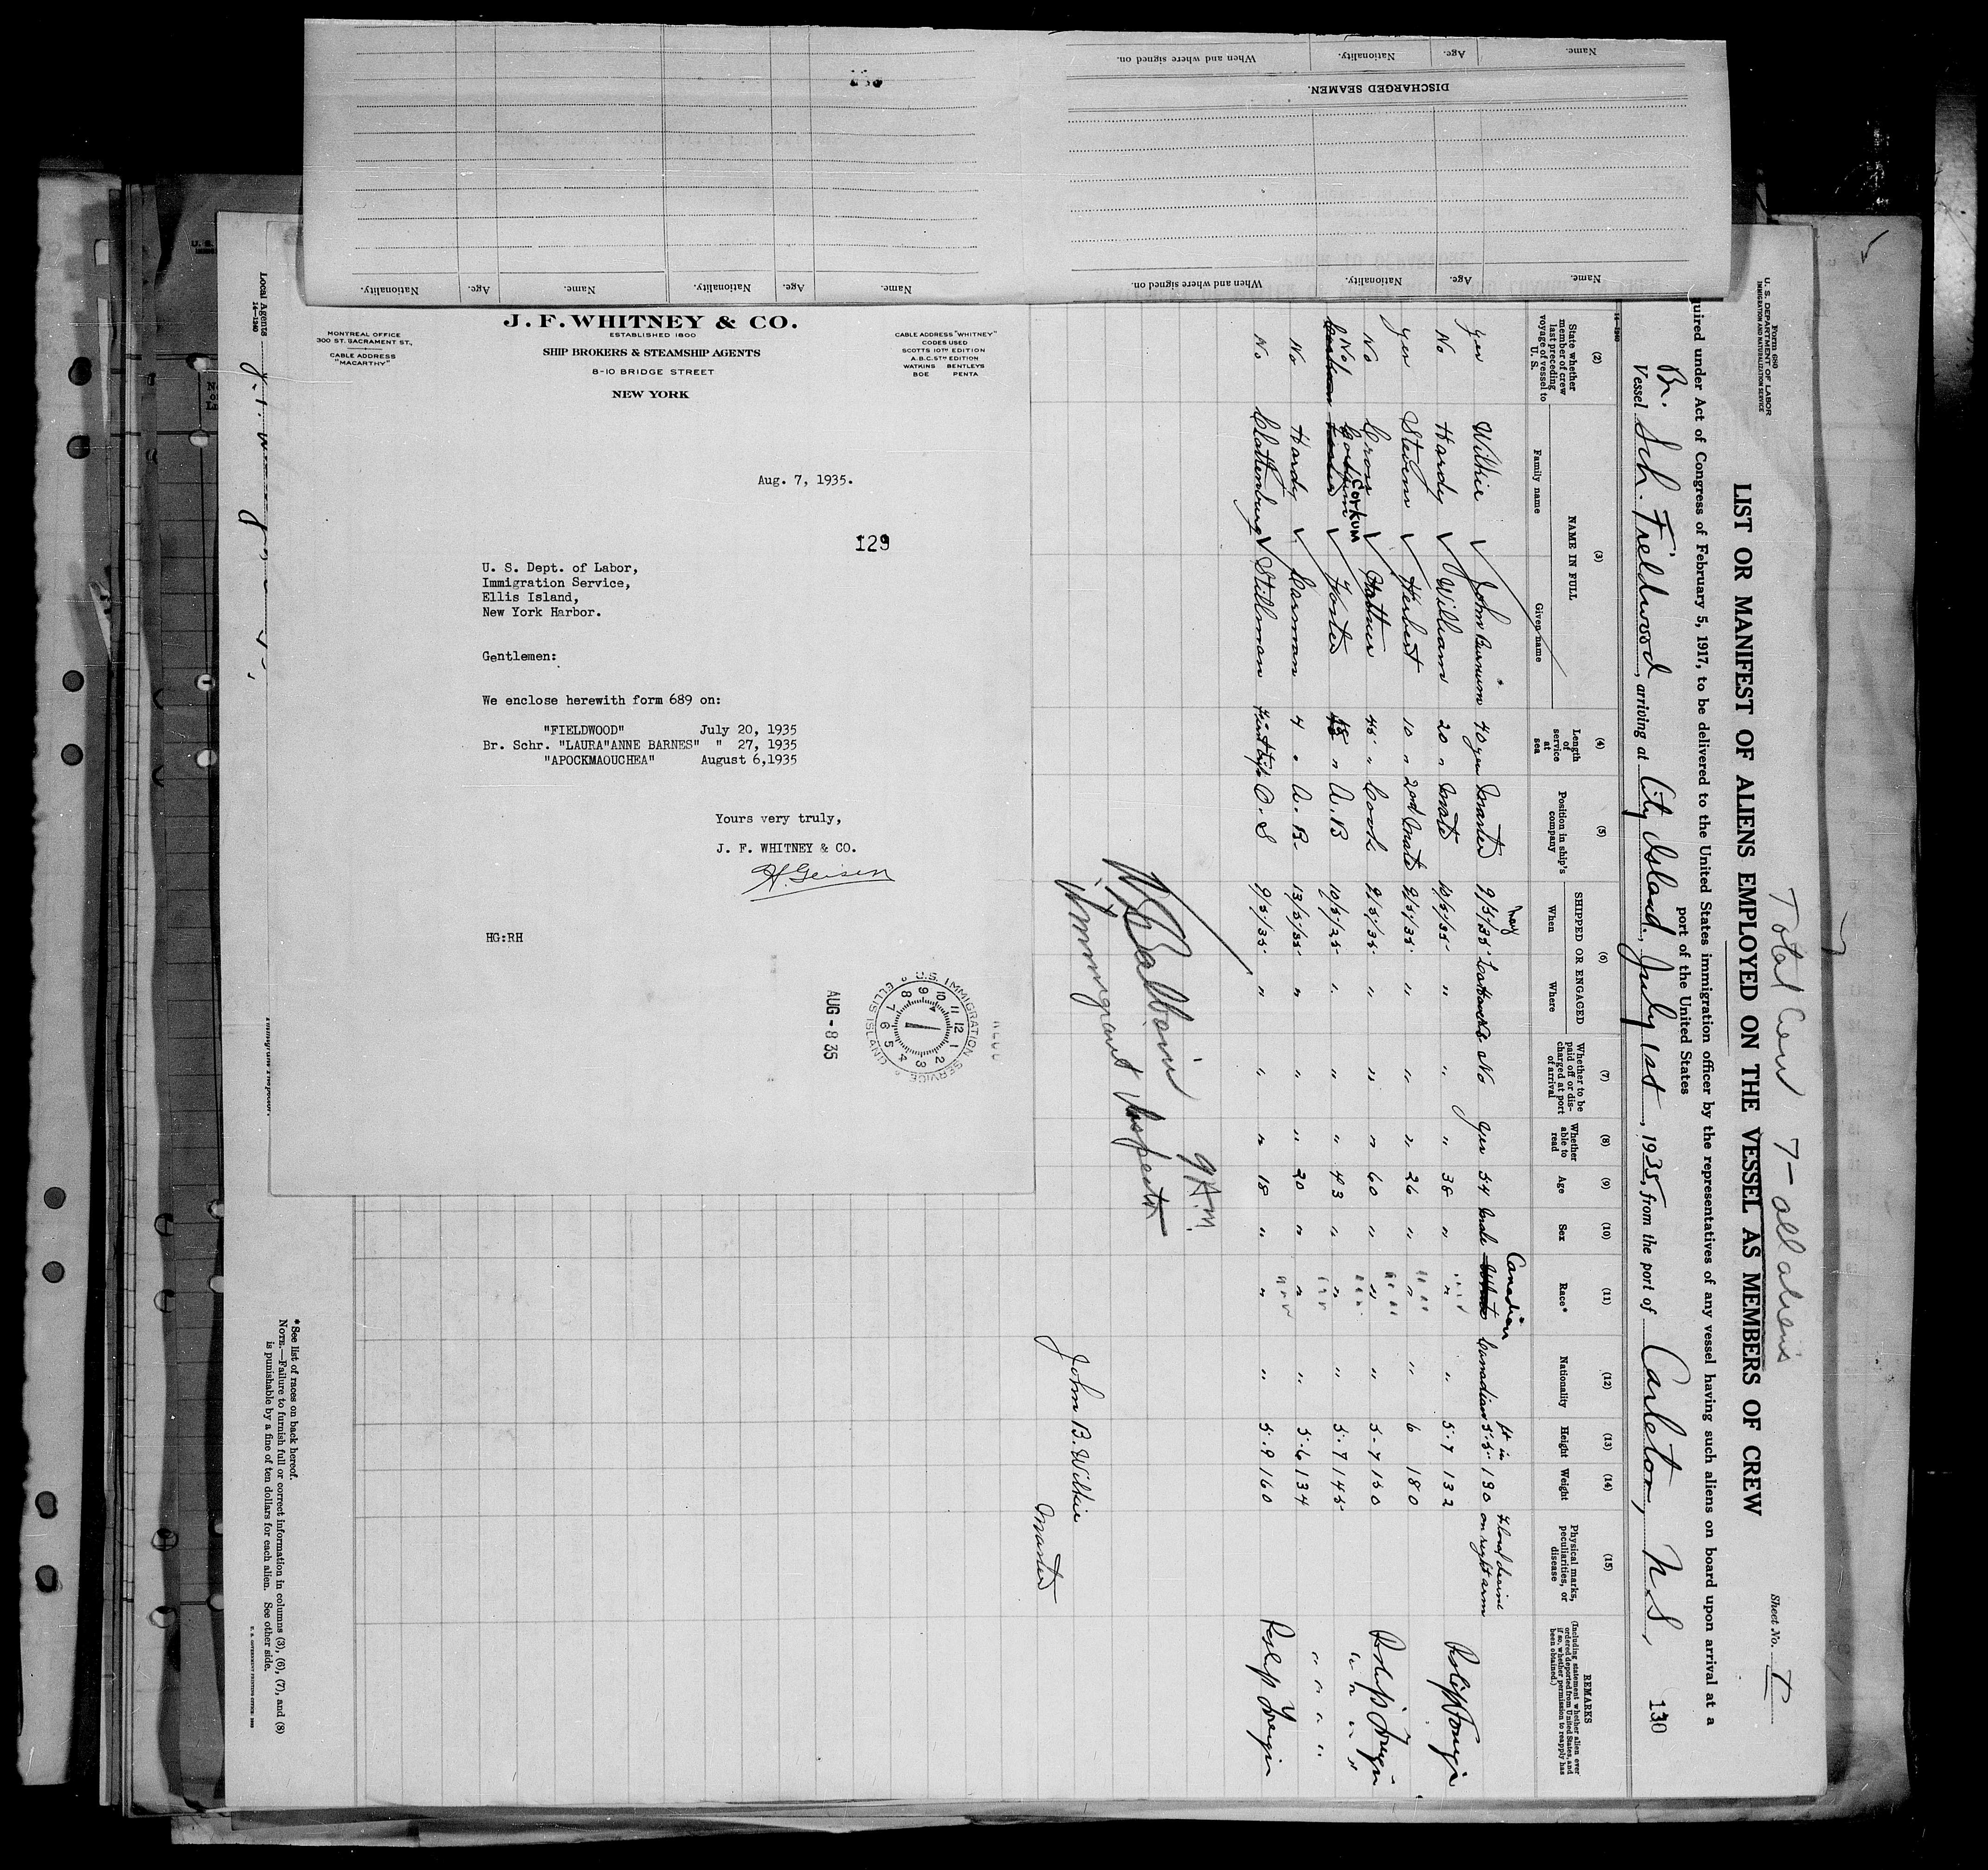 Name.
Age.
Nationality.
When and where signed on.
DISCHARGED SEAMEN.
Name.
Age.
Nationality.
When and where signed on.
Name.
Age.
Nationality.
Name.
Age.
Nationality.
J. F. WHITNEY & CO.
ESTABLISHED 1800
SHIP BROKERS & STEAMSHIP AGENTS
8-10 BRIDGE STREET
NEW YORK
MONTREAL OFFICE
300 ST. SACRAMENT ST.,
CABLE ADDRESS
"MACARTHY"
CABLE ADDRESS "WHITNEY"
CODES USED
SCOTTS 10TH EDITION
A.B.C. 5TH EDITION
WATKINS BENTLEYS
BOE PENTA
Aug. 7, 1935.
129
U. S. Dept. of Labor,
Immigration Service,
Ellis Island,
New York Harbor.
Gentlemen:
We enclose herewith form 689 on:
"FIELDWOOD" July 20, 1935
Br. Schr. "LAURA"ANNE BARNES" " 27, 1935
"APOCKMAOUCHEA" August 6,1935
Yours very truly,
J. F. WHITNEY & CO.
H. Geisen
HG:RH
U.S. IMMIGRATION SERVICE
ELLIS ISLAND
12 1 2 3 4 5 6 7 8 9 10 11
AUG - 8 35
Total Crew 7 - all aliens
Sheet No. 1
Form 680
U. S. DEPARTMENT OF LABOR
IMMIGRATION AND NATURALIZATION SERVICE
LIST OR MANIFEST OF ALIENS EMPLOYED ON THE VESSEL AS MEMBERS OF CREW
quired under Act of Congress of February 5, 1917, to be delivered to the United States immigration officer by the representatives of any vessel having such aliens on board upon arrival at a
port of the United States
Vessel Br. Sch. Fieldwood, arriving at City Island, July 1st, 1935, from the port of Carleton, N.S.
130
14-1240
(2) State whether member of crew last preceding voyage of vessel to U. S.
(3) NAME IN FULL
Family name
Given name
(4) Length of service at sea
(5) Position in ship's company
(6) SHIPPED OR ENGAGED
When
Where
(7) Whether to be paid off or discharged at port of arrival
(8) Whether able to read
(9) Age
(10) Sex
(11) Race*
(12) Nationality
(13) Height
(14) Weight
(15) Physical marks, peculiarities, or disease
REMARKS
(Including statement whether alien ever ordered deported from United States, and if so, whether permission to reapply has been obtained.)
Canadian ft in Floral design
Yes Wilkie ✓ John Burnum 40 yrs Master 9/5/35 LaHave NS No Yes 54 Male White Canadian 5.5 190 on right arm
No Hardy ✓ William 20 " Mate 10/5/35 " " " 38 " " " 5.7 132
Yes Stevens ✓ Herbert 10 " 2nd Mate 9/5/35 " " " 26 " " " 6 180
No Cross ✓ 45 " Cook 9/5/35 " " " 60 " " " 5-7 150
No Corkum ✓ Foster " A.B 10/5/35 " " " 43 " " " 5.7 145
No Hardy ✓ 4 " A.B. 13/5/35 " " " 20 " " " 5.6 134
No Clattenburg ✓ Stillman First trip O.S 9/5/35 " " " 18 " " " 5.9 160
9 A.M.
Immigrant Inspector
John B. Wilkie
Master
*See list of races on back hereof.
NOTE.—Failure to furnish full or correct information in columns (3), (6), (7), and (8)
is punishable by a fine of ten dollars for each alien. See other side.
U. S. GOVERNMENT PRINTING OFFICE
Local Agents
14-1240
Immigrant Inspector.